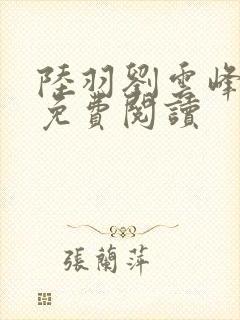 陸羽劉雲峰
免費閱讀
張蘭萍